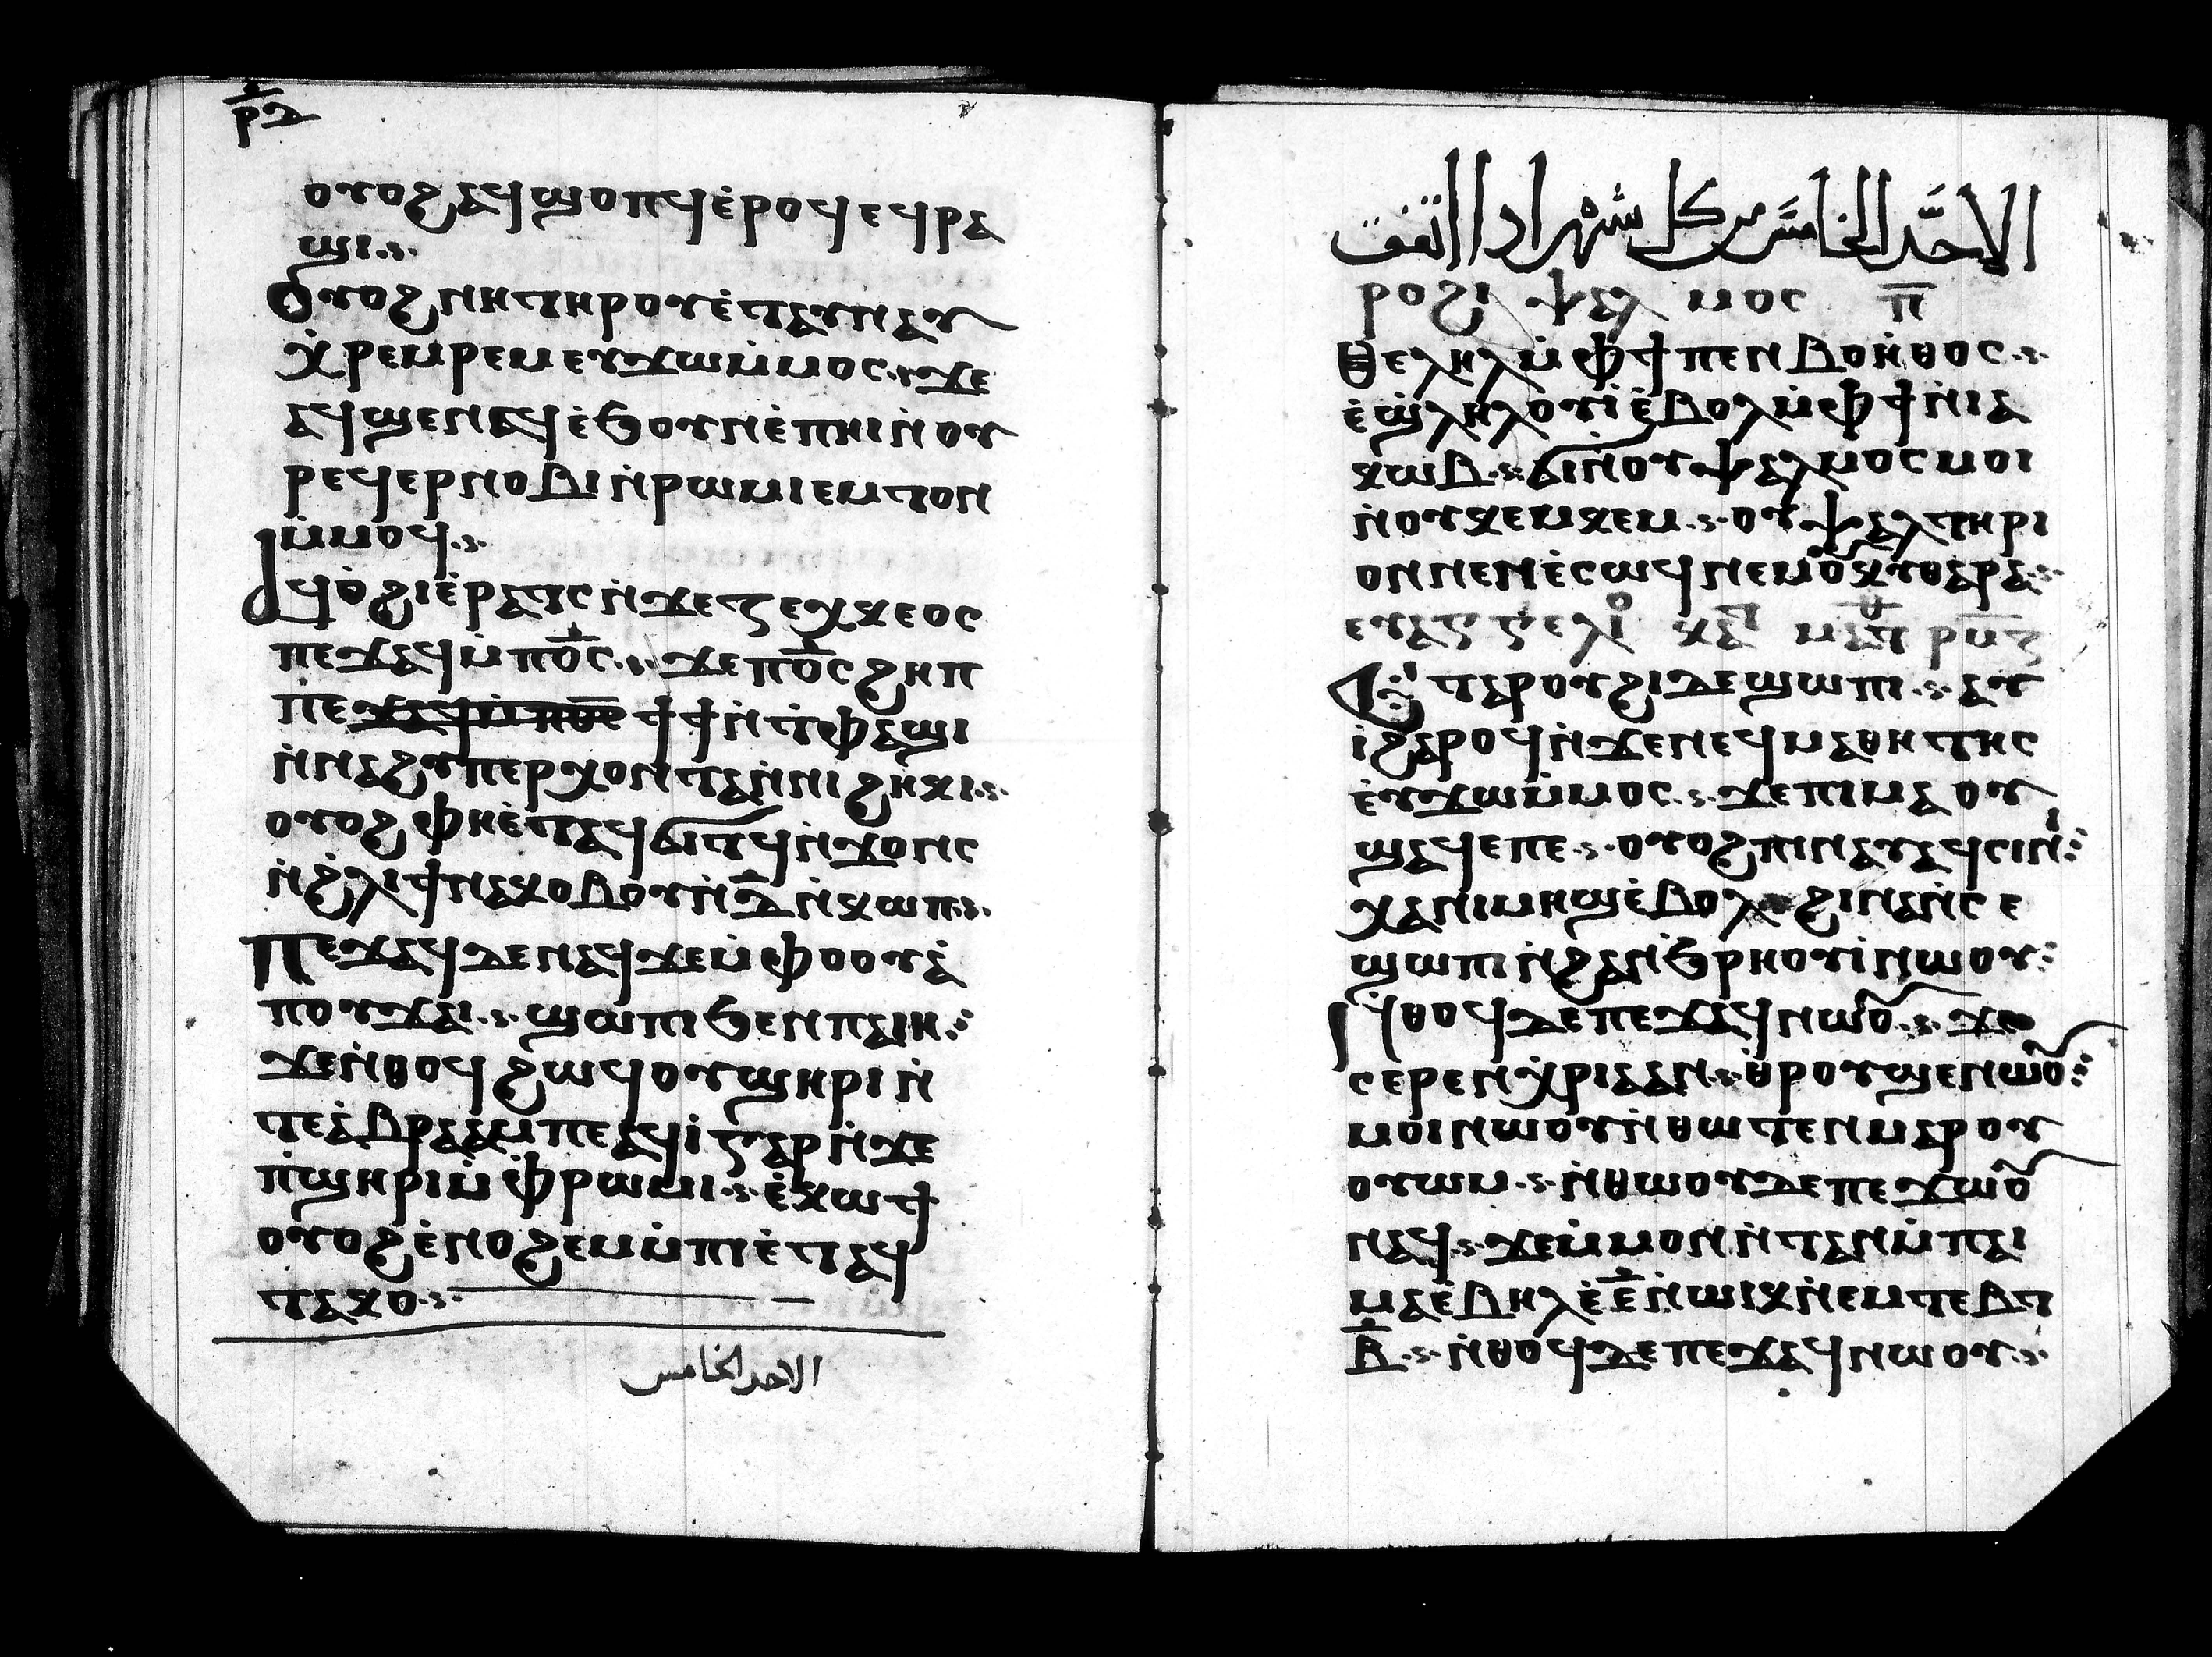 ⲣ̅ⲇ
ⲟⲩⲟϩ ⲁϥϣⲟⲡϥ ⲉ̀ⲣⲟϥ ⲉϥⲣⲁ
ϣⲓ.ⲥ.
Ⲟⲩⲟϩ ⲛⲏ ⲧⲏⲣⲟⲩ ⲉ̀ⲧⲁⲩⲛⲁⲩ
ⲭ̀ⲣⲉⲙⲣⲉⲙ ⲉⲩϫⲱ ⲙ̀ⲙⲟⲥ.ⲥ. ϫⲉ
ⲁϥϣⲉⲛⲁϥ ⲉ̀ϧⲟⲩⲛ ⲉ̀ⲡⲏⲓ ⲛ̀ⲟⲩ
ⲣⲉϥⲉⲣⲛⲟⲃⲓ ⲛ̀ⲣⲱⲙⲓ ⲉⲙⲧⲟⲛ
ⲙ̀ⲙⲟϥ.ⲥ.
Ⲁϥⲟ̀ϩⲓ ⲉ̀ⲣⲁⲧϥ ⲛ̀ϫⲉ ⲍⲉⲕⲭⲉⲟⲥ
ⲡⲉϫⲁϥ ⲙ̀ⲡⲟ̅ⲥ̅.ⲥ. ϫⲉ ⲡⲟ̅ⲥ̅ ϩⲏⲡ
ⲡⲉ ϯϯ ⲛ̀ⲧ̀ⲫⲁϣⲓ
ⲛ̀ⲛⲁϩⲩⲡⲉⲣⲭⲟⲛⲧⲁ ⲛ̀ⲛⲓϩⲏⲕⲓ.ⲥ.
ⲟⲩⲟϩ ⲫⲏ ⲉ̀ⲧⲁϥϭⲓⲧϥ ⲛ̀ϫⲟⲛⲥ
ⲛ̀ϩ̀ⲗⲓ ϯⲛⲁⲕⲟⲃⲟⲩ ⲛ̀ⲇ̅ ⲛ̀ⲕⲱⲡ.ⲥ.
Ⲡⲉϫⲁϥ ⲇⲉ ⲛⲁϥ ϫⲉ ⲙ̀ⲫⲟⲟⲩ ⲁ̀
ⲡⲟⲩϫⲁⲓ.ⲥ. ϣⲱⲡⲓ ϧⲉⲛ ⲡⲁⲓⲏ⁝
ϫⲉ ⲛ̀ⲑⲟϥ ϩⲱϥ ⲟⲩϣⲏⲣⲓ ⲛ̀
ⲧⲉ ⲁ̀ⲃⲣⲁⲁⲙ ⲡⲉ ⲁϥⲓ̀ ⲅⲁⲣ ⲛ̀ϫⲉ
ⲡ̀ϣⲏⲣⲓ ⲙ̀ⲫ̀ⲣⲱⲙⲓ.ⲥ. ⲉ̀ⲕⲱϯ
ⲟⲩⲟϩ ⲉ̀ⲛⲟϩⲉⲙ ⲙ̀ⲡⲓ ⲉ̀ⲧⲁϥ
ⲧⲁⲕⲟ.ⲥ.
الاحد الخامس
الاحد الخامس من كل شهر اذا اتفق
ⲣⲟϩⲓ ⲯⲁⲗⲙⲟⲥ ⲡ̅
Ⲑⲉⲗⲏⲗ ⲙ̀ⲫϯ ⲡⲉⲛⲃⲟⲏ̀ⲑⲟⲥ.ⲥ.
ⲉ̀ϣ̀ⲗⲏⲗⲟⲩⲓ̀ ⲉ̀ⲃⲟⲗ ⲙ̀ⲫϯ ⲛ̀ⲓⲁ
ⲕⲱⲃ.ⲥ. ϭⲓ ⲛ̀ⲟⲩⲯⲁⲗⲙⲟⲥ ⲙⲟⲓ
ⲛ̀ⲟⲩⲕⲉⲙⲕⲉⲙ.ⲥ. ⲟⲩⲯⲁⲗⲧⲏⲣⲓ
ⲟⲛ ⲛⲉⲛⲉ̀ⲥⲱϥ ⲛⲉⲙ ⲟⲩⲕⲩⲑⲁⲣⲁ.ⲥ.
ⲉⲩⲁⲅⲅⲉⲗⲓⲟ ⲕⲁ ⲙⲁⲧⲑ ⲣⲙ̅ⲍ̅
Ⲉ̀ⲧⲁⲣⲟⲩϩⲓ ⲇⲉ ϣⲱⲡⲓ.ⲥ. ⲁⲩ
ⲓ̀ ϩⲁⲣⲟϥ ⲛ̀ϫⲉ ⲛⲉϥⲙⲁⲑⲏⲧⲏⲥ
ⲉ̀ⲩϫⲱ ⲙ̀ⲙⲟⲥ.ⲥ. ϫⲉ ⲡⲓⲙⲁ ⲟⲩ
ϣⲁϥⲉ ⲡⲉ.ⲥ. ⲟⲩⲟϩ ⲡⲓⲛⲁⲩ ⲁϥⲥⲓⲛⲓ̀⁝
ⲭⲁ ⲛⲓⲙⲏϣ ⲉ̀ⲃⲟⲗ ϩⲓⲛⲁ ⲛ̀ⲥⲉ
ϣⲱⲡⲓ ⲛ̀ϩⲁⲛϧ̀ⲣⲏⲟⲩⲓ̀ ⲛⲱⲟⲩ⁝
Ⲛ̀ⲑⲟϥ ⲇⲉ ⲡⲉϫⲁϥ ⲛⲱⲟⲩ.ⲥ. ϫⲉ
ⲥⲉⲣⲉⲛⲭ̀ⲣⲓⲁ ⲁⲛ.ⲥ. ⲑ̀ⲣⲟⲩϣⲉⲛⲱⲟⲩ⁝
ⲙⲟⲓ ⲛⲱⲟⲩ ⲛ̀ⲑⲱⲧⲉⲛ ⲙⲁⲣⲟⲩ
ⲟⲩⲱⲙ.ⲥ. ⲛ̀ⲑⲱⲟⲩ ⲇⲉ ⲡⲉϫⲱⲟⲩ
ⲛⲁϥ.ⲥ. ϫⲉ ⲙ̀ⲙⲟⲛ ⲛ̀ⲧⲁⲛ ⲙ̀ⲡⲁⲓ
ⲙⲁ ⲉ̀ⲃⲏⲗ ⲉ̀ⲉ̅ ⲛ̀ⲱⲓⲕ ⲛ̀ⲉⲙ ⲧⲉⲃⲧ
ⲃ̅.ⲥ. ⲛ̀ⲑⲟϥ ⲇⲉ ⲡⲉϫⲁϥ ⲛⲱⲟⲩ.ⲥ.